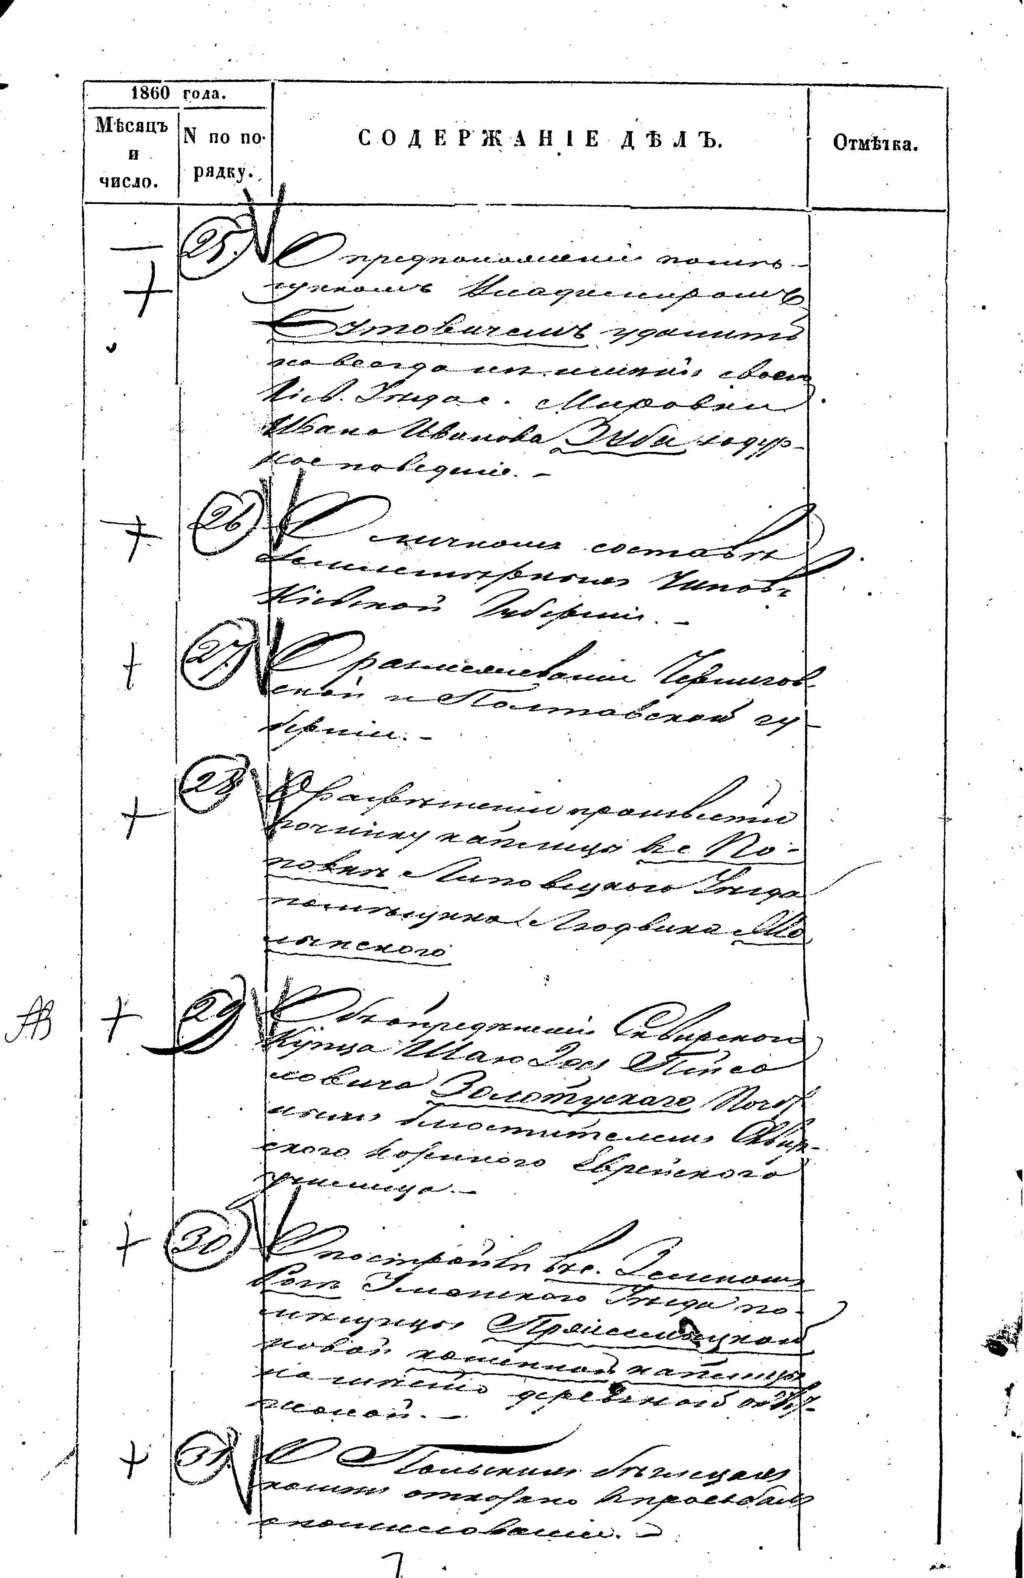 1860 года.
Мѣсяцъ и число.
N по порядку.
СОДЕРЖАНІЕ ДѢЛЪ.
Отмѣтка.
25.
О предположеніи помѣ-
щикомъ Владимиромъ
Бутовичемъ удалить
на всегда изъ имѣнія своего
Кіев. Уѣзда с. Мировки
Ивана Иванова Зубы за дур-
ное поведеніе. -
26
О личномъ составѣ
Чиновъ
Кіевской Губерніи. -
27.
О размежеваніи Чернигов-
ской и Полтавской гу-
берніи. -
28
О разрѣшеніи произвести
починку каплицы в с. По-
повкѣ Липовецкого Уѣзда
помѣщика Людвика
29
О Сквирского
Купца
ловича Золотускаго Почет-
нымъ блюстителемъ Сквир-
ского казенного Еврейского
училища. -
30
О постройкѣ в с. Зеленомъ
Розѣ Уманского Уѣзда по-
мѣщицы
новой каменной каплицы
на мѣсто деревяной
31.
О Польскихъ бѣглецахъ
коимъ отказано в просьбахъ
о помилованіи. -
7
АВ